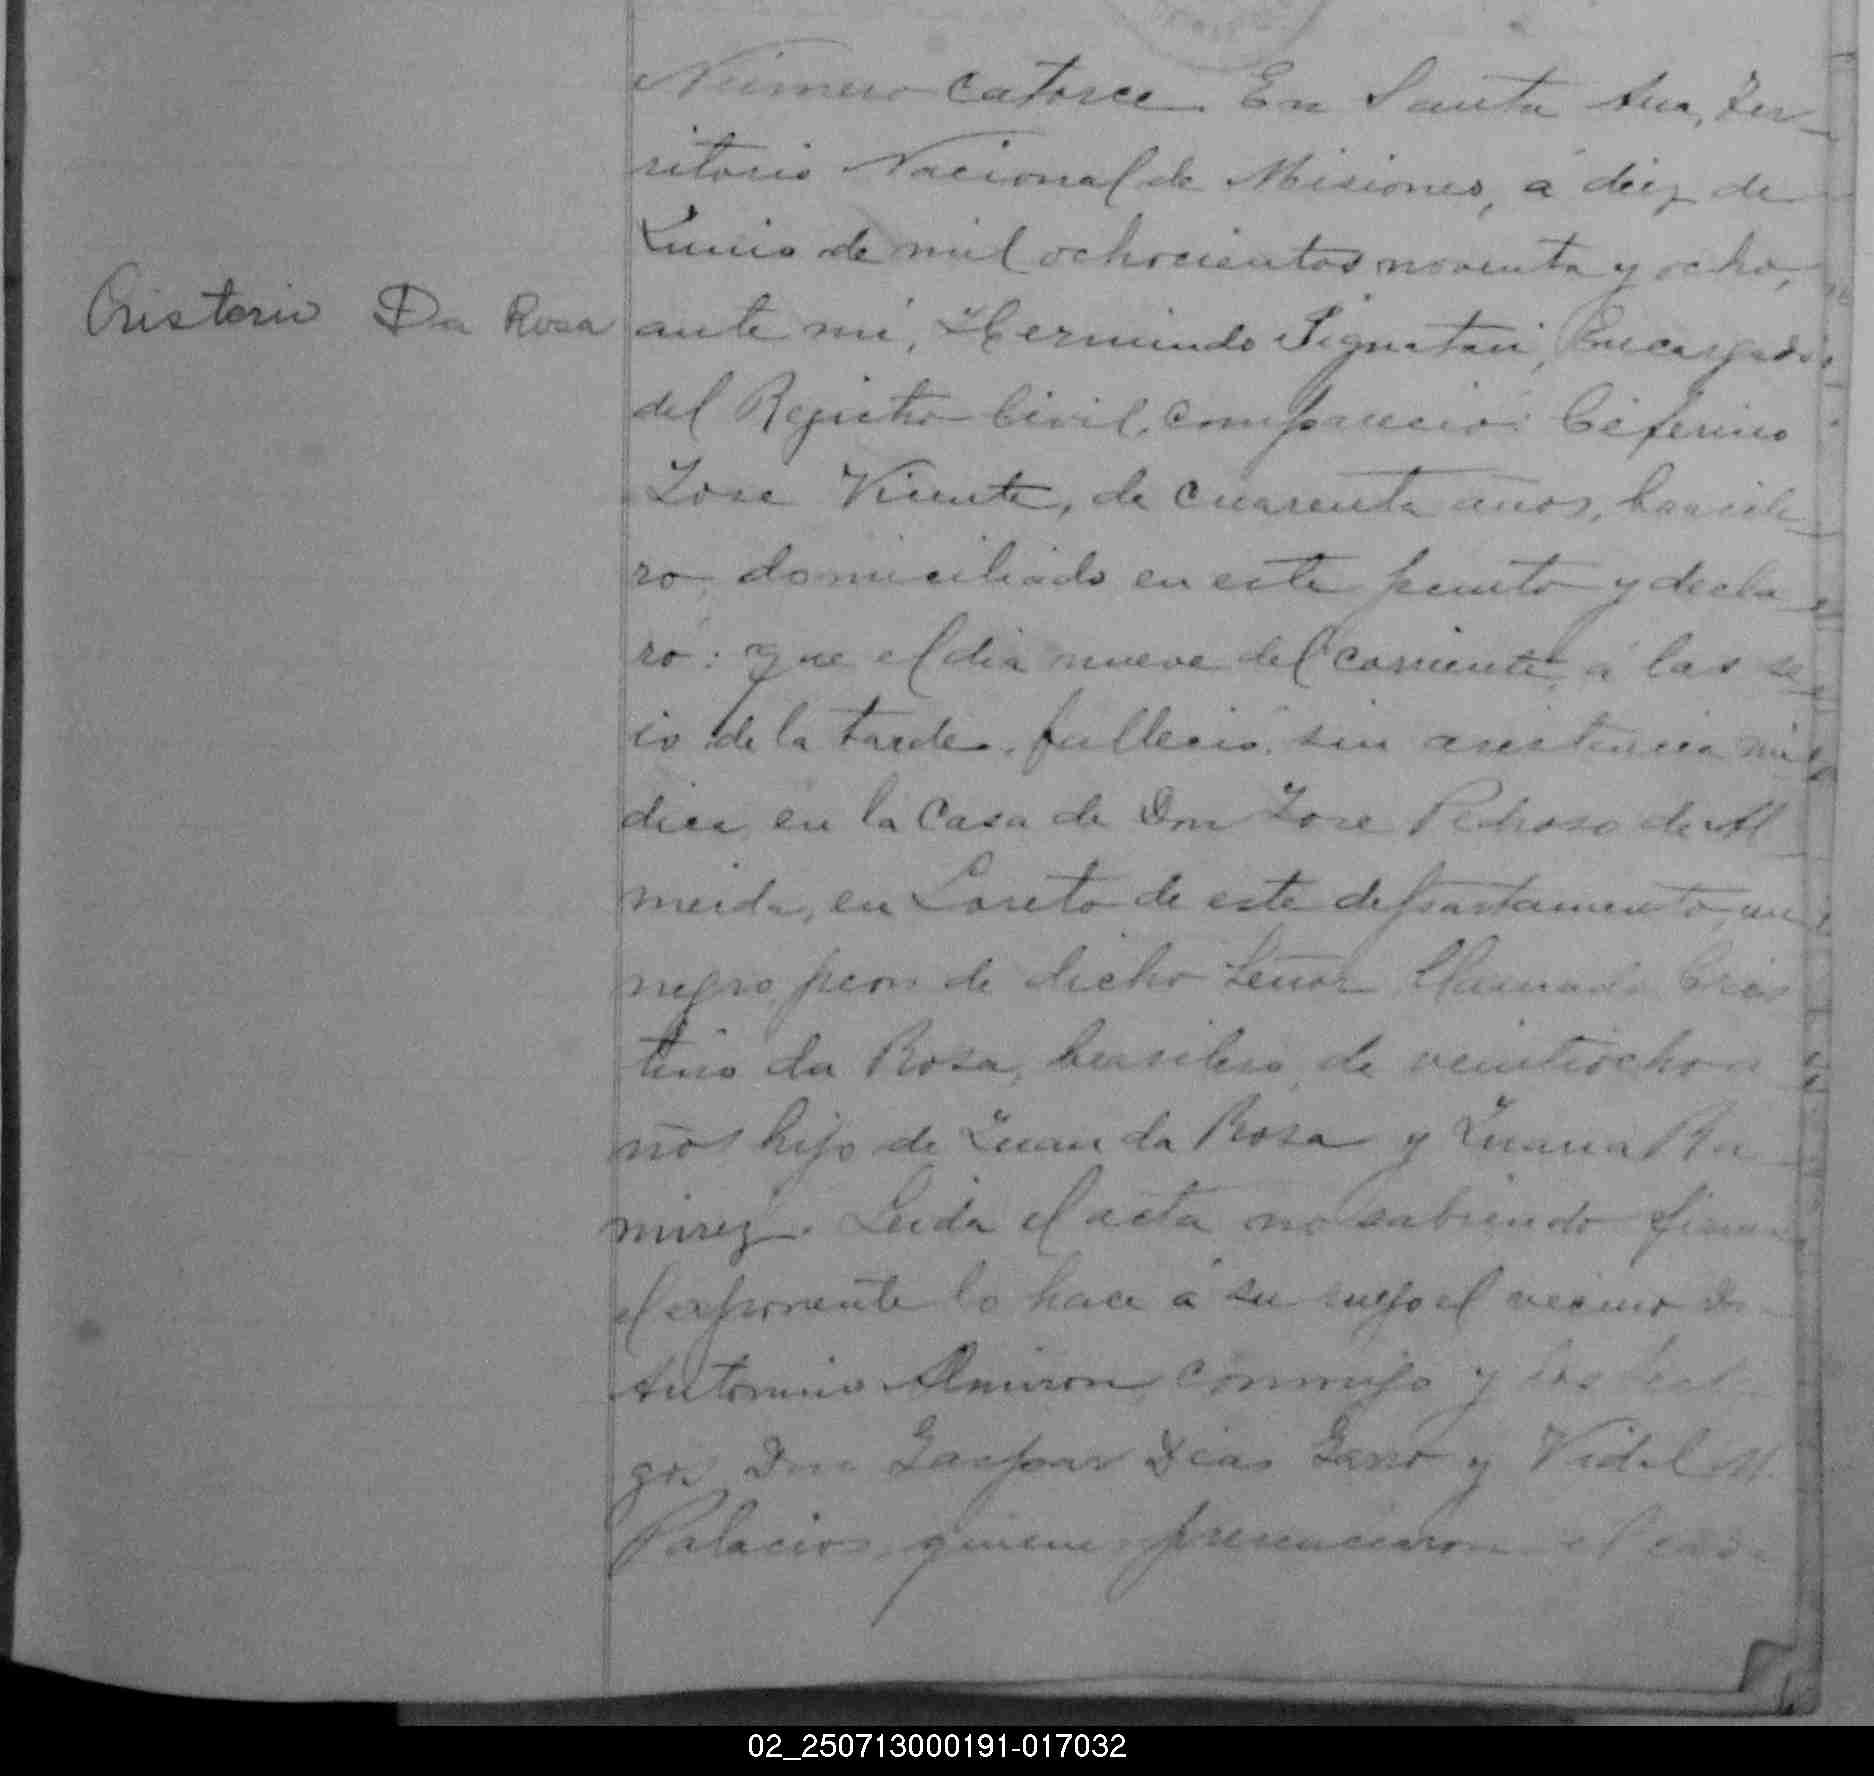 Número catorce. En Santa Ana, Ter-
ritorio Nacional de Misiones, á diez de
Junio de mil ochocientos noventa y ocho,
Cristerio Da Rosa
ante mi, Hermindo Signatari, Encargado
del Registro Civil, compareció: Ceferino
Jose Vicente, de cuarenta años, brasile
ro, domiciliado en este punto y decla
ró: Que el dia nueve del corriente, á las se
is de la tarde, falleció sin asistencia mé
dica, en la casa de Don Jose Pedroso de Al
meida, en Loreto de este departamento, un
negro peon de dicho Señor llamado Cris
terio da Rosa, brasilero, de veintiocho a
ños hijo de Juan da Rosa y Juana Ra
mirez. Leida el acta no sabiendo firmar
el exponente lo hace á su ruego el vecino Dn
Antonino Almiron, conmigo y los testi
gos Don Gaspar Dias Garro y Vidal M.
Palacios, quienes presenciaron el cada
02_250713000191-017032